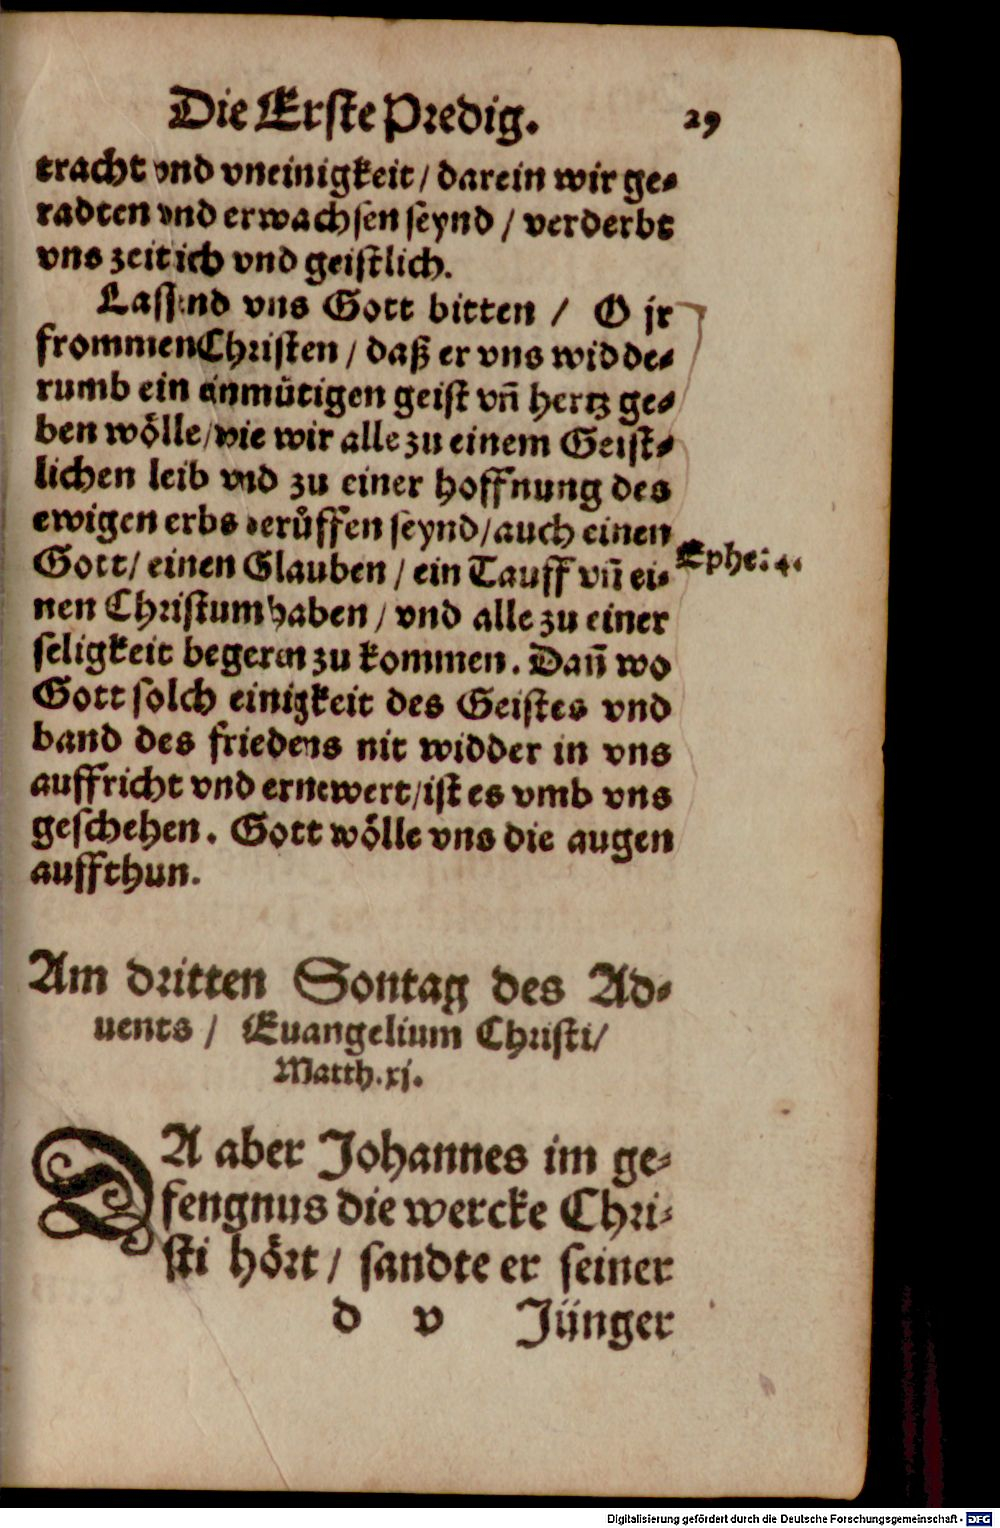 Die Erste Predig. 29
tracht vnd vneinigkeit / darein wir ge⸗
radten vnd erwachsen seynd / verderbt
vns zeitlich vnd geistlich.
Lassend vns Gott bitten / O jr
frommen Christen / daß er vns widde⸗
rumb ein anmütigen geist vn̄ hertz ge⸗
ben wölle / wie wir alle zu einem Geist⸗
lichen leib vnd zu einer hoffnung des
ewigen erbs berůffen seynd / auch einen
Gott / einen Glauben / ein Tauff vn̄ ei⸗
Ephe: 4.
nen Christum haben / vnd alle zu einer
seligkeit begeren zu kommen. Dan̄ wo
Gott solch einigkeit des Geistes vnd
band des friedens nit widder in vns
auffricht vnd ernewert / ist es vmb vns
geschehen. Gott wölle vns die augen
auffthun.
Am dritten Sontag des Ad⸗
uents / Euangelium Christi /
Matth. xj.
DA aber Johannes im ge⸗
fengnus die wercke Chri⸗
sti hört / sandte er seiner
d v Jünger
Digitalisierung gefördert durch die Deutsche Forschungsgemeinschaft - DFG